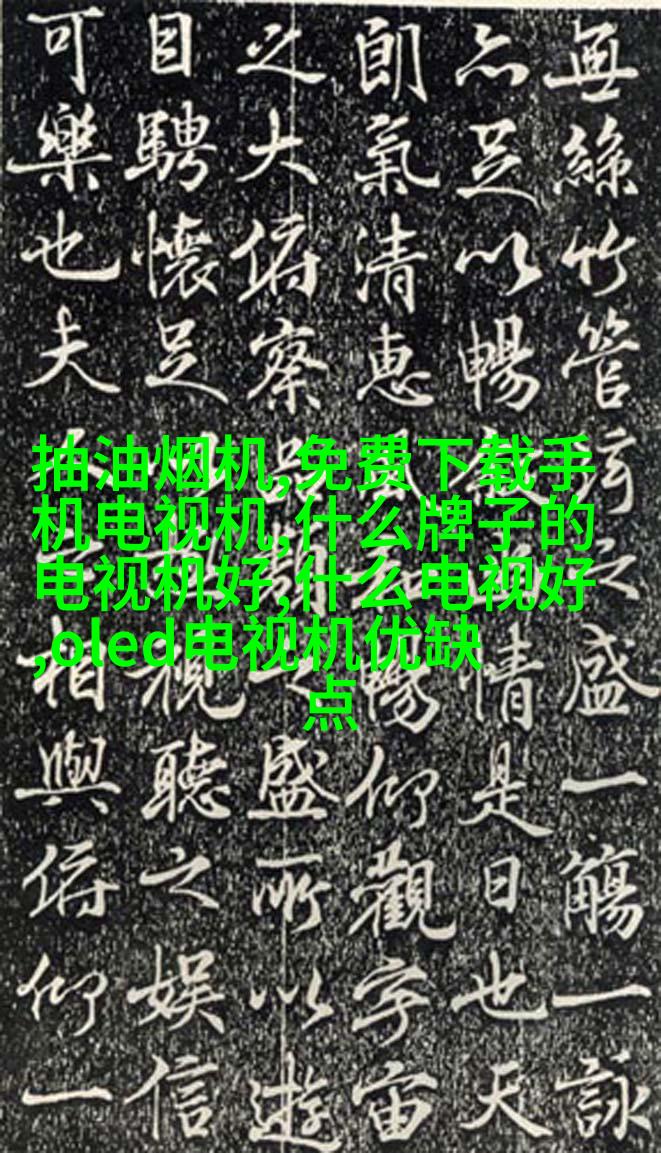 無絲竹管之盛一觴一詠
亦足以暢敘情是日也天
朗氣清惠風和暢仰觀宇宙
之大俯察品類之盛所以遊
目騁懷足以視聽之娛信
可樂也夫相與俯仰一
抽油烟机,免费下载手
机电视机,什么牌子的
电视机好,什么电视好
,oled电视机优缺
点